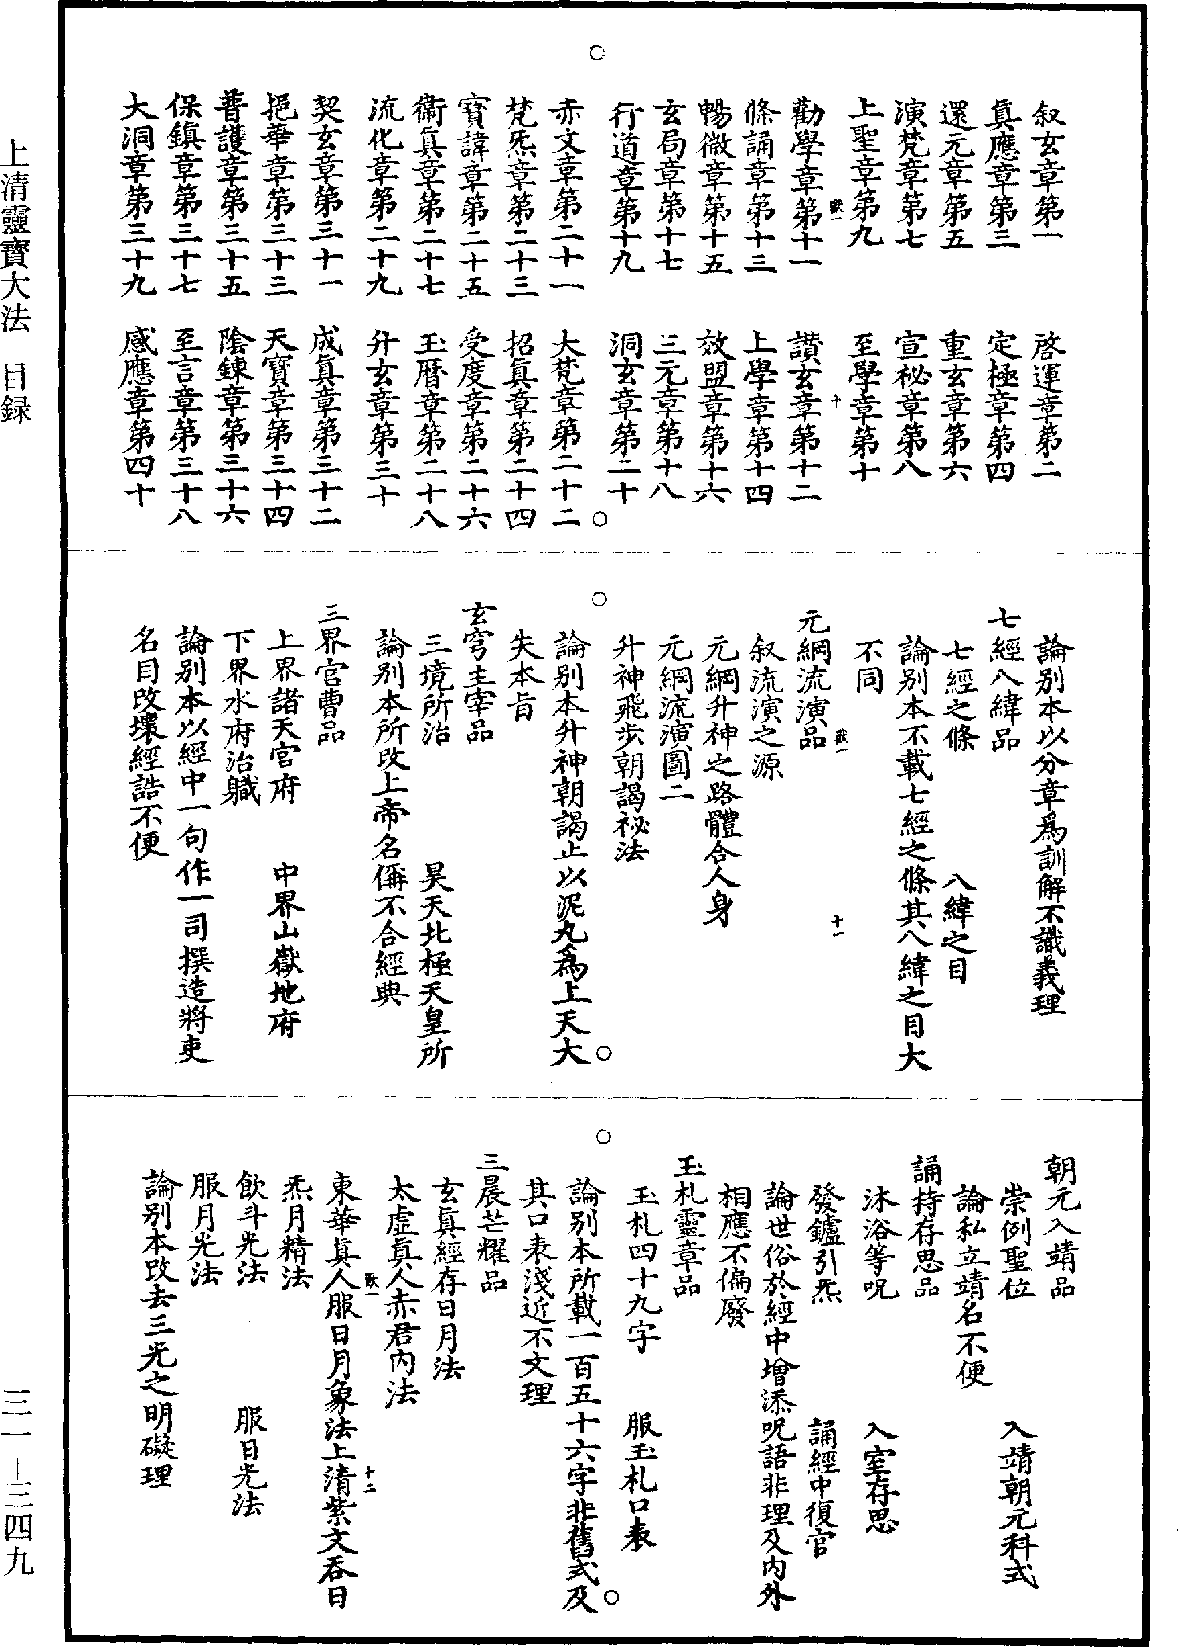 叙玄章第一　啓運章第二
真應章第三　定極章第四
還元章第五　重玄章第六
演梵章第七　宣祕章第八
上聖章第九　至學章第十
勸學章第十一　讚玄章第十二
條誦章第十三　上學章第十四
暢微章第十五　效盟章第十六
玄局章第十七　三元章第十八
行道章第十九　洞玄章第二十
赤文章第二十一　大梵章第二十二
梵炁章第二十三　招真章第二十四
寶諱章第二十五　受度章第二十六
衛真章第二十七　玉曆章第二十八
流化章第二十九　升玄章第三十
契玄章第三十一　成真章第三十二
挹華章第三十三　天寶章第三十四
普護章第三十五　陰鍊章第三十六
保鎮章第三十七　至言章第三十八
大洞章第三十九　感應章第四十
論別本以分章爲訓解不識義理
七經八緯品
七經之條　八緯之目
論別本不載七經之條其八緯之目大
不同
元綱流演品
十一
叙流演之源
元綱升神之路體合人身
元綱流演圖二
升神飛步朝謁祕法
論別本升神朝謁止以泥丸爲上天大
失本旨
玄穹主宰品
三境所治　昊天北極天皇所
論別本所改上帝名偁不合經典
三界官曹品
上界諸天官府　中界山嶽地府
下界水府治職
論別本以經中一句作一司撰造將吏
名目改壞經誥不便
朝元入靖品
崇例聖位　入靖朝元科式
論私立靖名不便
誦持存思品
沐浴等呪　入室存思
發鑪引炁　誦經中復官
論世俗於經中增添呪語非理及內外
相應不偏廢
玉札靈章品
玉札四十九字　服玉札口袠
論別本所載一百五十六字非舊式及
其口袠淺近不文理
三晨芒耀品
玄真經存日月法
太虛真人赤君內法
十二
東華真人服日月象法上清紫文吞日
炁月精法
飲斗光法　服日光法
服月光法
論別本改去三光之明礙理
上清靈寶大法　目録
三一－三四九